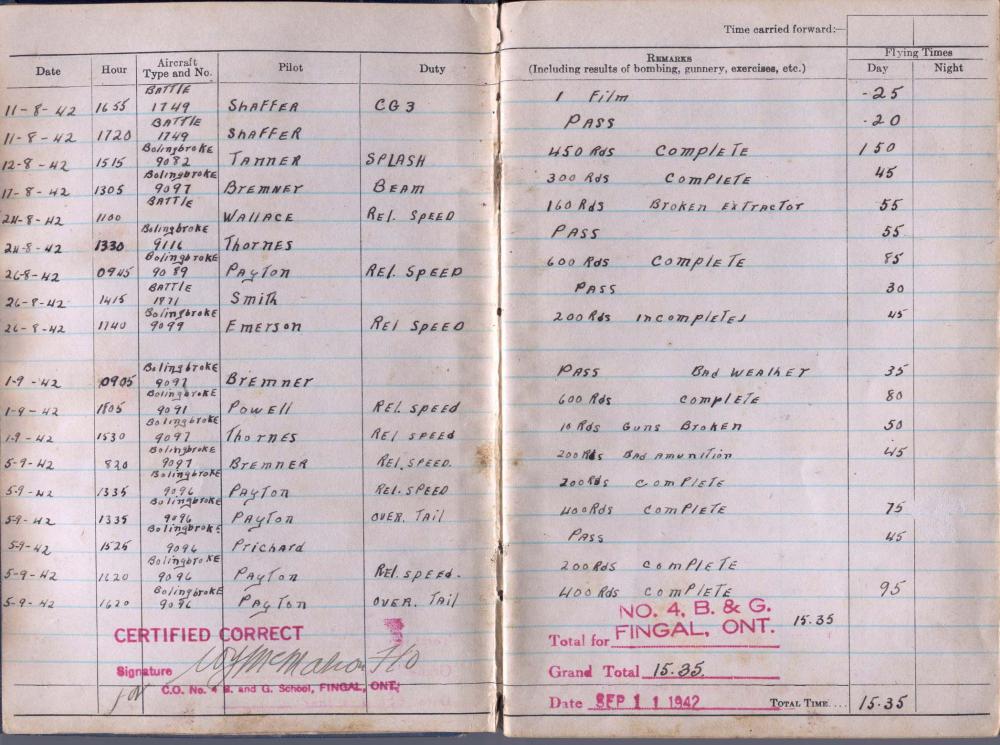 Time carried forward:—
Date Hour Aircraft Type and No. Pilot Duty REMARKS (Including results of bombing, gunnery, exercises, etc.) Flying Times Day Night
11-8-42 1655 BATTLE 1749 SHAFFER CG3 1 Film -25
11-8-42 1720 BATTLE 1749 SHAFFER PASS -20
12-8-42 1515 Bolingbroke 9082 TANNER SPLASH 450 Rds COMPLETE 150
17-8-42 1305 Bolingbroke 9097 BREMNER BEAM 300 Rds COMPLETE 45
24-8-42 1100 BATTLE WALLACE REL. SPEED 160 Rds Broken Extractor 55
24-8-42 1330 Bolingbroke 9116 Thornes PASS 55
26-8-42 0945 Bolingbroke 9089 PAYTON REL. SPEED 600 Rds COMPLETE 85
26-8-42 1415 BATTLE 1871 Smith PASS 30
26-8-42 1740 Bolingbroke 9099 Emerson REL SPEED 200 Rds incompleted 45
1-9-42 0905 Bolingbroke 9097 Bremner PASS Bad WEATHER 35
1-9-42 1805 Bolingbroke 9091 Powell REL. speed 600 Rds complete 80
1-9-42 1530 Bolingbroke 9097 Thornes REL speed 10 Rds Guns Broken 50
5-9-42 820 Bolingbroke 9097 BREMNER REL. SPEED. 200 Rds Bad amunition 45
5-9-42 1335 Bolingbroke 9096 PAYTON REL. SPEED 200 Rds COMPLETE
5-9-42 1335 Bolingbroke 9096 PAYTON OVER. Tail 400 Rds COMPLETE 75
5-9-42 1525 Bolingbroke 9096 Prichard PASS 45
5-9-42 1620 Bolingbroke 9096 PAYTON REL. SPEED. 200 Rds COMPLETE
5-9-42 1620 Bolingbroke 9096 PAYTON OVER. Tail 400 Rds COMPLETE 95
CERTIFIED CORRECT
Signature McMahon F/O
for C.O. No. 4 B. and G. School, FINGAL, ONT.
NO. 4, B. & G.
Total for FINGAL, ONT. 15.35
Grand Total 15.35.
Date SEP 11 1942 TOTAL TIME.... 15.35